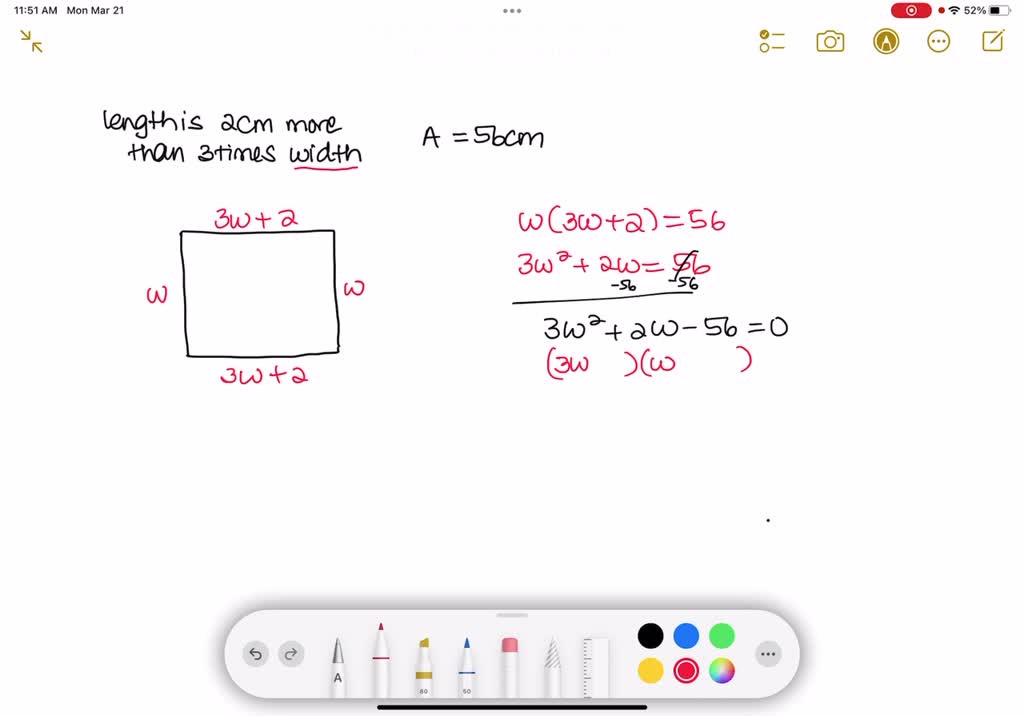 11:51 AM Mon Mar 21
52%
length is 2cm more
than 3 times width
A = 56cm
3w + 2
w
w
3w + 2
w(3w+2) = 56
3w² + 2w = 56
-56 -56
3w² + 2w - 56 = 0
(3w )(w )
A
80
50